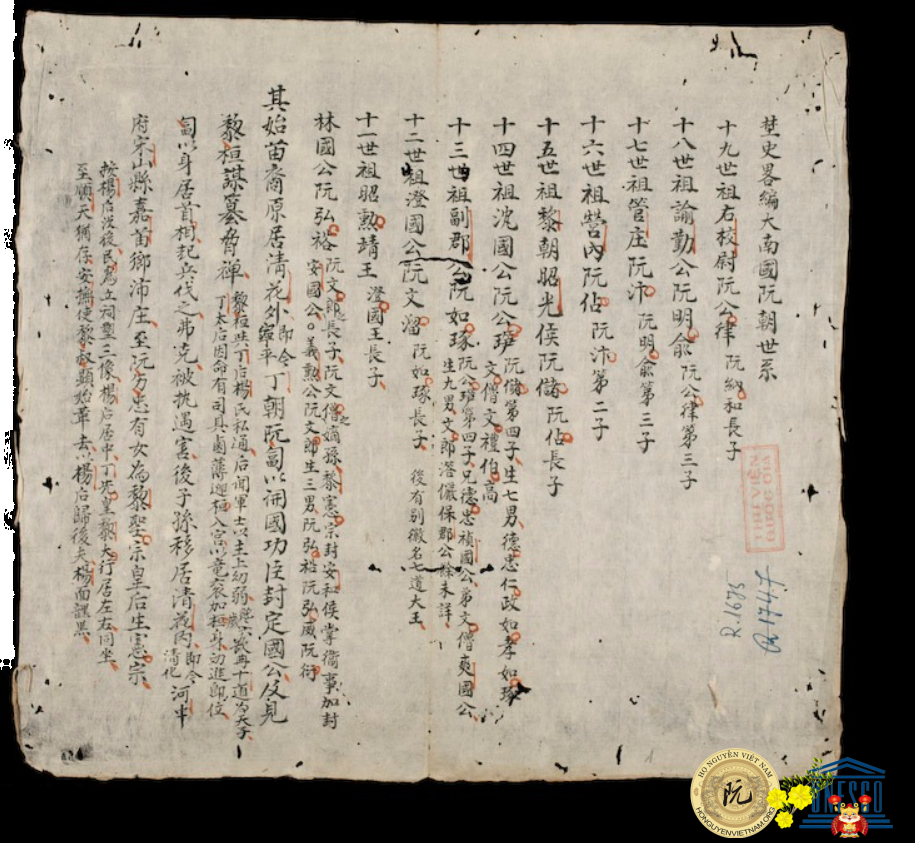 埜史畧編大南國阮朝世系
十九世祖右校尉阮公律 阮納和長子
十八世祖諭勤公阮明俞 阮公律第三子
十七世祖管庄阮汴 阮明俞第三子
十六世祖營內阮佔 阮汴第二子
十五世祖黎朝昭光侯阮儲 阮佔長子
十四世祖沈國公阮公 阮儲第四子生七男德忠仁政如孝如琢
文僧文禮伯高
十三世祖副郡公阮如琢 阮公 第四子兄德忠禎國公弟文僧奭國公
生九男文郎 儂保郡公餘未詳
十二世祖澄國公阮文溜 阮如琢長子 後有別徽名七道大王
十一世祖昭勲靖王 澄國王長子
林國公阮弘裕 阮文郎長子阮文僧之嫡孫黎憲宗封安和侯掌衛事加封
安國公。義勲公阮文郎生三男阮弘裕阮弘威阮衍
其始苗裔原居清花外即今寧平丁朝阮匐以開國功臣封定國公及見
黎桓謀篡脅禅 黎桓與丁后楊氏私通后開軍士以主上幼弱 再十道為天子
丁太后因命有司具鹵薄迎桓入宮以竜衣加桓身勿進即位
匐以身居首相起兵伐之弗克被执遇害後子孫移居清花內即今清化河中
府宋山縣嘉苗鄉沛庄至阮方忠有女為黎聖宗皇后生憲宗
按楊后沒後民為立祠塑三像楊后居中丁先皇黎大行居左右同坐
至順天 存安撫使黎叔顯始革去以楊后歸後夫楊面 黒
THƯ VIỆN
QUỐC GIA
R.1685
HỌ NGUYỄN VIỆT NAM
阮
HONGUYENVIETNAM.ORG
UNESCO